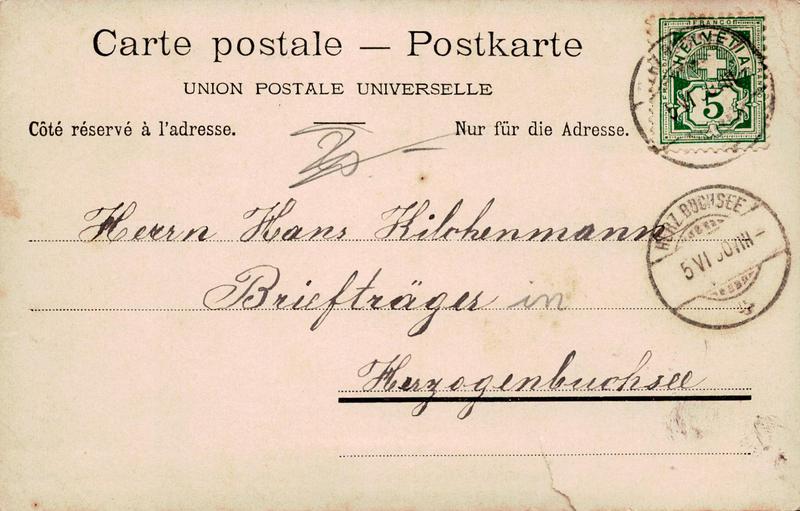 Carte postale — Postkarte
UNION POSTALE UNIVERSELLE
Côté réservé à l'adresse.
Nur für die Adresse.
FRANCO
HELVETIA
5
HERZ.BUCHSEE
5 VI 00 VIII –
Herrn Hans Kilchenmann
Briefträger in
Herzogenbuchsee